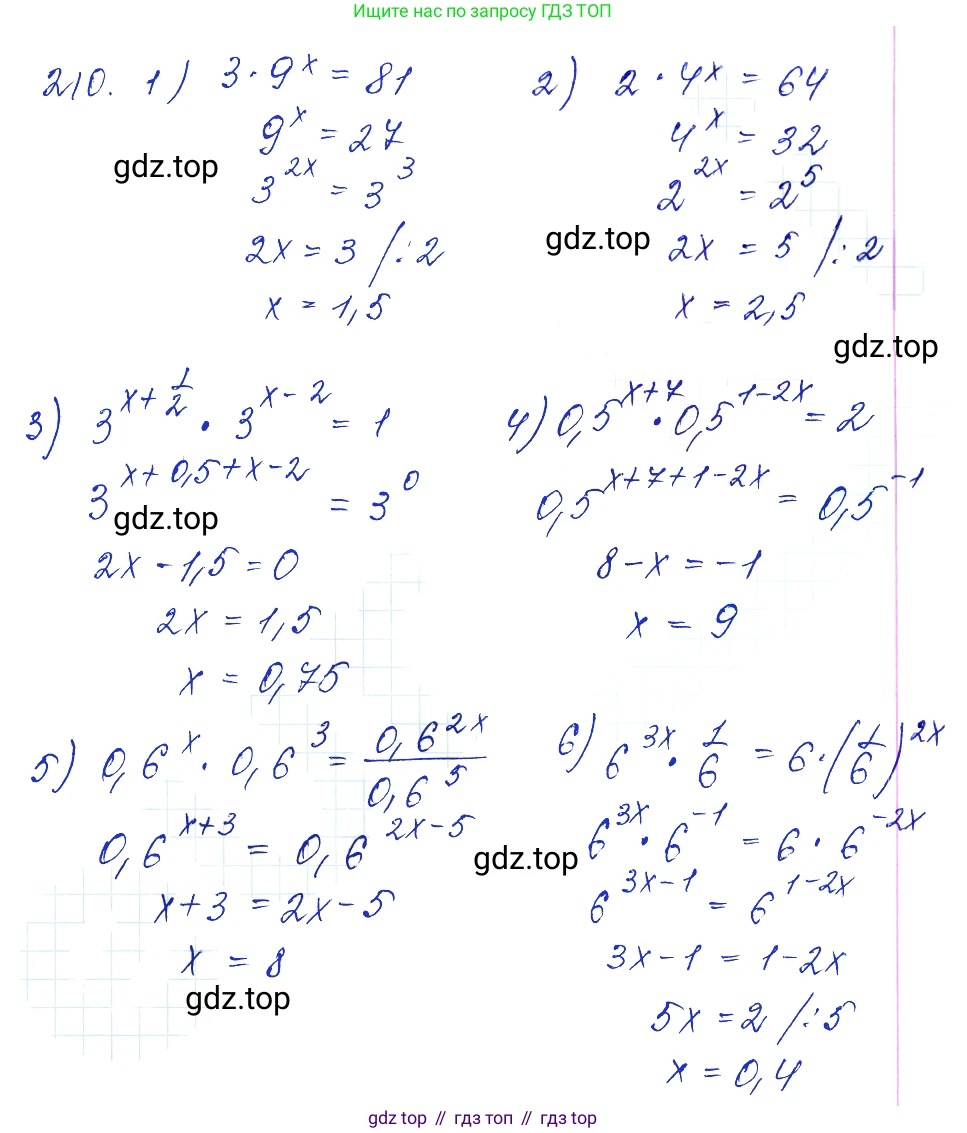 Ищите нас по запросу ГДЗ ТОП
210. 1) 3 · 9^x = 81
9^x = 27
gdz.top
3^{2x} = 3^3
2x = 3 /: 2
x = 1,5
2) 2 · 4^x = 64
4^x = 32
2^{2x} = 2^5
gdz.top
2x = 5 /: 2
x = 2,5
gdz.top
3) 3^{x+\frac{1}{2}} · 3^{x-2} = 1
3^{x+0,5+x-2} = 3^0
gdz.top
2x - 1,5 = 0
2x = 1,5
x = 0,75
4) 0,5^{x+7} · 0,5^{1-2x} = 2
0,5^{x+7+1-2x} = 0,5^{-1}
8 - x = -1
x = 9
5) 0,6^x · 0,6^3 = \frac{0,6^{2x}}{0,6^5}
0,6^{x+3} = 0,6^{2x-5}
gdz.top
x + 3 = 2x - 5
x = 8
gdz.top
6) 6^{3x} · \frac{1}{6} = 6 · (\frac{1}{6})^{2x}
6^{3x} · 6^{-1} = 6 · 6^{-2x}
6^{3x-1} = 6^{1-2x}
3x - 1 = 1 - 2x
5x = 2 /: 5
x = 0,4
gdz top // гдз топ // gdz top